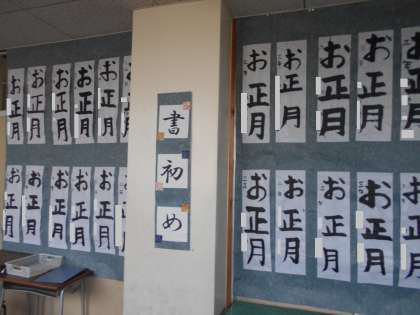 お正月
お正月
お正月
お正月
お正月
お正月
お正月
お正月
お正月
お正月
お正月
お正月
書初め
お正月
お正月
お正月
お正月
お正月
お正月
お正月
お正月
お正月
お正月